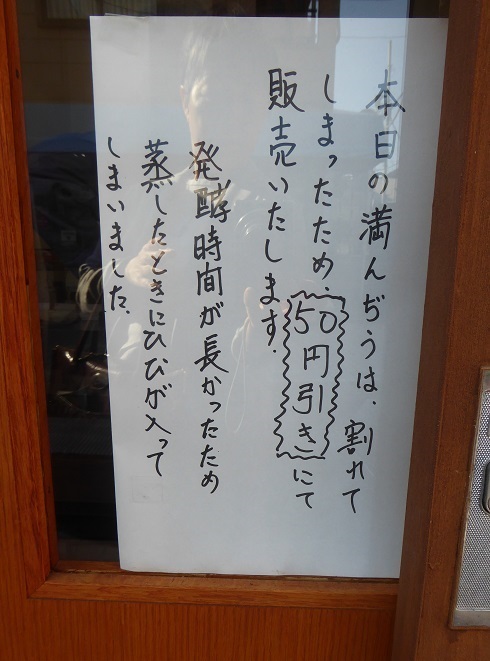 本日の満んぢうは、割れて
しまったため、50円引きにて
販売いたします.
発酵時間が長かったため
蒸したときにひびが入って
しまいました.